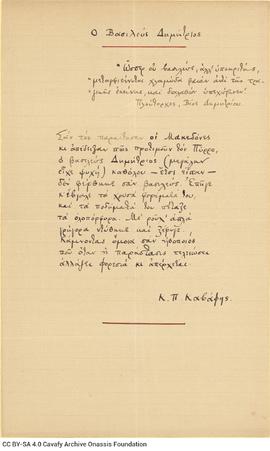 Ο Βασιλεύς Δημήτριος
Ώσπερ ου βασιλεύς, αλλ' υποκριτής,
μεταμφιέννυται χλαμύδα φαιάν αντί της τρα-
γικής εκείνης, και διαλαθών υπεχώρησεν.
Πλούταρχος, Βίος Δημητρίου
Σαν τον παραίτησαν οι Μακεδόνες
κι απέδειξαν πως προτιμούν τον Πύρρο,
ο βασιλεύς Δημήτριος (μεγάλην
είχε ψυχή) καθόλου — έτσι είπαν —
δεν φέρθηκε σαν βασιλεύς. Επήγε
κ' έβγαλε τα χρυσά φορέματά του,
και τα ποδήματά του πέταξε
τα ολοπόρφυρα. Με ρούχ' απλά
γρήγορα ντύθηκε και ξέφυγε.
Κάμνοντας όμοια σαν ηθοποιός
που όταν η παράστασις τελειώσει
αλλάζει φορεσιά κι απέρχεται.
Κ. Π. Καβάφης.
CC BY-SA 4.0 Cavafy Archive Onassis Foundation